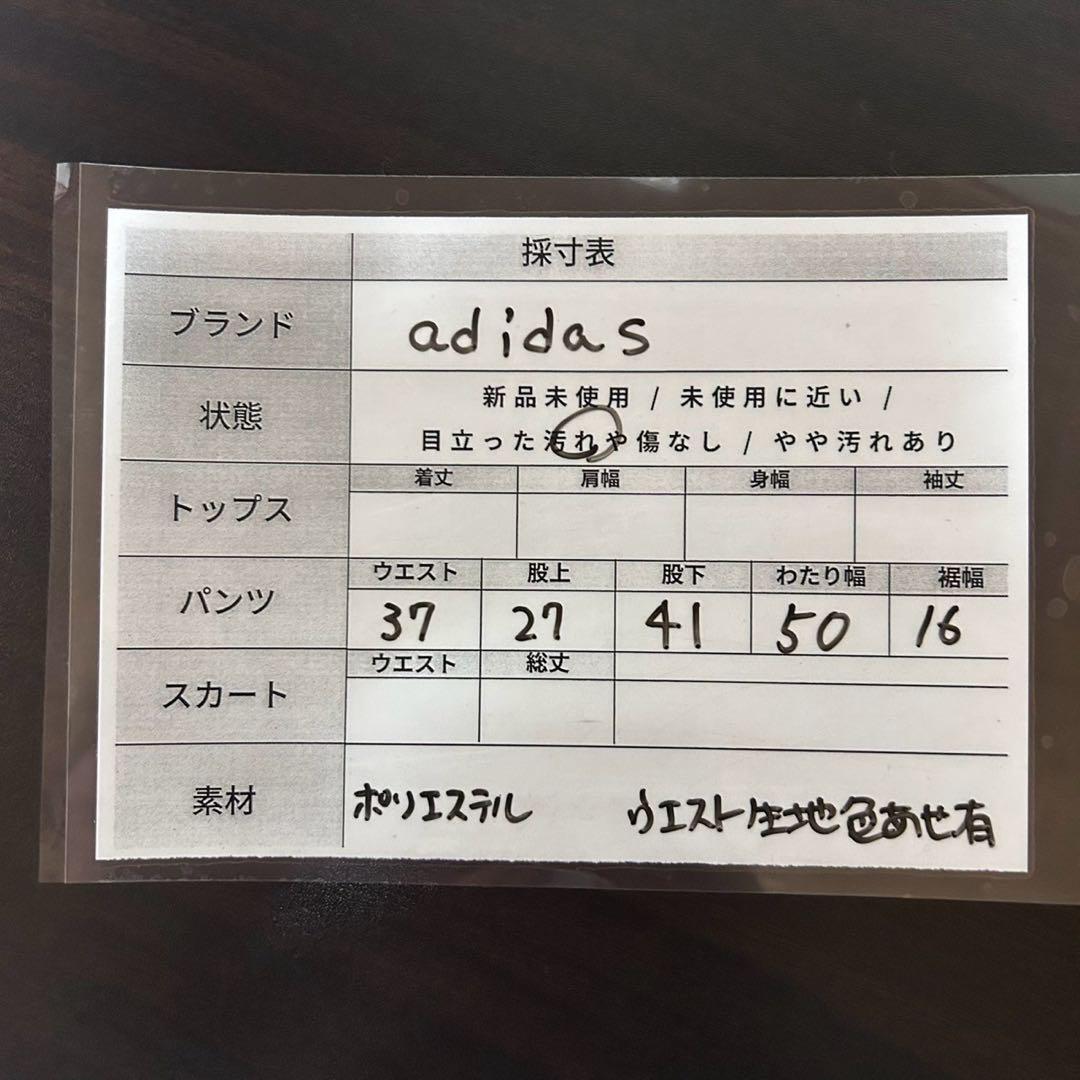 採寸表
ブランド adidas
状態 新品未使用 / 未使用に近い /
目立った汚れや傷なし / やや汚れあり
トップス 着丈 肩幅 身幅 袖丈
パンツ ウエスト 股上 股下 わたり幅 裾幅
37 27 41 50 16
スカート ウエスト 総丈
素材 ポリエステル ウエスト生地色あせ有